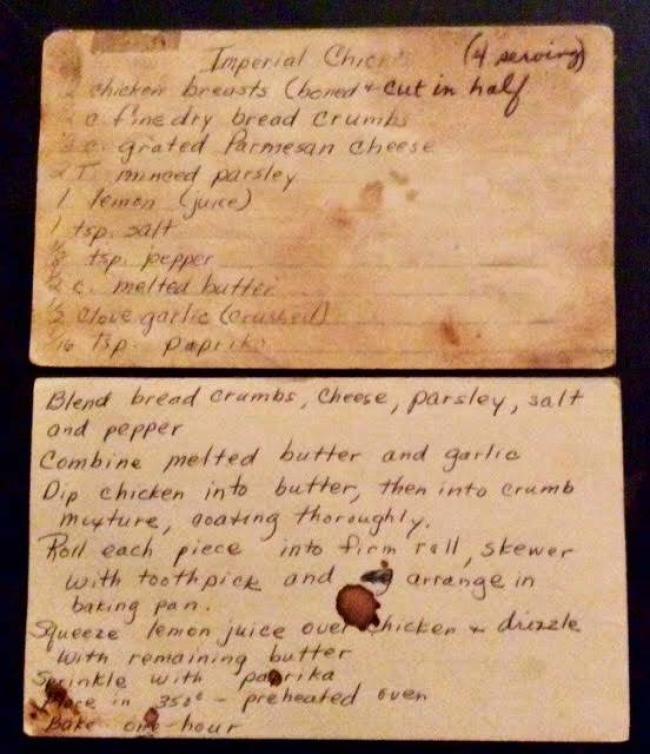 Imperial Chicken (4 serving)
2 chicken breasts (boned + cut in half
c. fine dry bread crumbs
c. grated Parmesan cheese
2 T. minced parsley
1 lemon (juice)
1 tsp. salt
tsp. pepper
c. melted butter
clove garlic (crushed)
tsp. paprika
Blend bread crumbs, cheese, parsley, salt
and pepper
Combine melted butter and garlic
Dip chicken into butter, then into crumb
mixture, coating thoroughly.
Roll each piece into firm roll, skewer
with toothpick and arrange in
baking pan.
Squeeze lemon juice over chicken + drizzle
with remaining butter
Sprinkle with paprika
Place in 350° - preheated oven
Bake one-hour